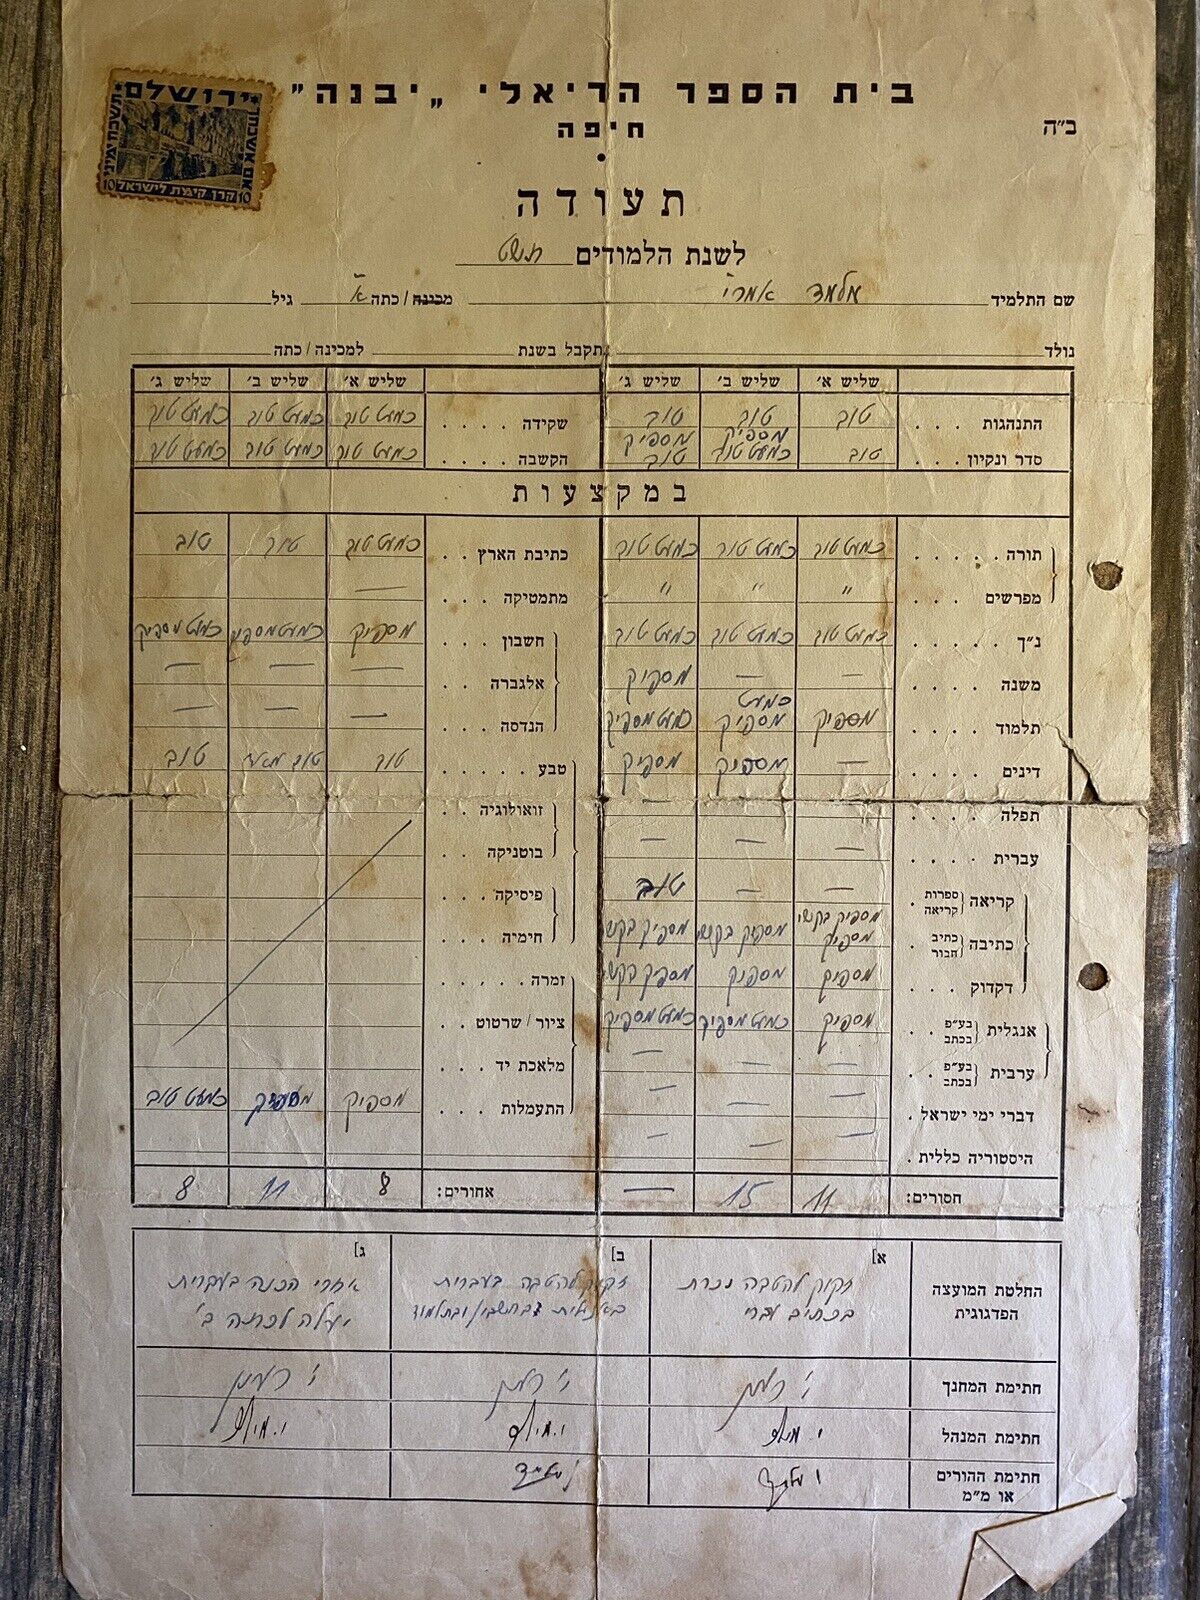 בית הספר הריאלי „יבנה"
חיפה
ב"ה
ירושלם
אם אשכחך
תשכח ימיני
10 קרן קימת לישראל 10
תעודה
לשנת הלמודים תשט
שם התלמיד מלמד אמרי מכינה/כתה א' גיל
נולד נתקבל בשנת למכינה/כתה
שליש א׳ שליש ב׳ שליש ג׳ שליש א׳ שליש ב׳ שליש ג׳
התנהגות . . . טוב טוב טוב שקידה . . . . כמעט טוב כמעט טוב כמעט טוב
מספיק מספיק
סדר ונקיון . . . טוב כמעט טוב טוב הקשבה . . . . כמעט טוב כמעט טוב כמעט טוב
במקצעות
תורה . . . . . כמעט טוב כמעט טוב כמעט טוב כתיבת הארץ . . כמעט טוב טוב טוב
מפרשים . . . " " " מתמטיקה . . . —
נ"ך . . . . . כמעט טוב כמעט טוב כמעט טוב חשבון . . . מספיק כמעט מספיק כמעט מספיק
משנה . . . . — — מספיק אלגברה . . — — —
תלמוד . . . . מספיק כמעט מספיק כמעט מספיק הנדסה . . — — —
דינים . . . . — מספיק מספיק טבע . . . . . טוב טוב מאד טוב
תפלה . . . . — זואולוגיה . .
עברית . . . . — — — בוטניקה . .
קריאה ספרות קריאה . — — טוב פיסיקה . . .
כתיבה כתיב חבור . מספיק בקשי מספיק מספיק בקשי מספיק בקשי חימיה . . .
דקדוק . . . מספיק מספיק מספיק בקשי זמרה . . . . .
אנגלית בע"פ בכתב . . מספיק כמעט מספיק כמעט מספיק ציור/שרטוט . .
ערבית בע"פ בכתב . . — — — מלאכת יד . . .
דברי ימי ישראל . — — — התעמלות . . . מספיק מספיק כמעט טוב
היסטוריה כללית . — — —
חסורים: 11 15 — אחורים: 8 11 8
החלטת המועצה הפדגוגית
א] זקוק להטבה נכרת
בכתיב עברי
ב] זקוק להטבה בעברית
באנגלית בחשבון ובתלמוד
ג] אחרי הכנה בעברית
יעלה לכתה ב'
חתימת המחנך
חתימת המנהל
חתימת ההורים
או מ"מ